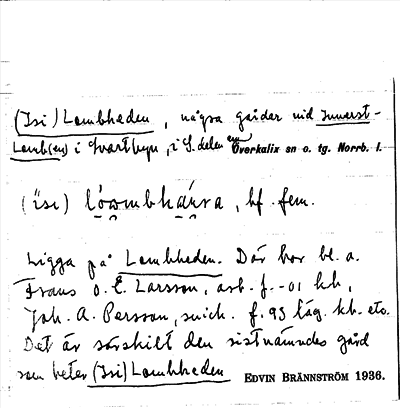 (Isi) Lombheden, några gårdar vid Innerst-
Lomb(en) i Svartbyn, i S. delen av Överkalix sn o. tg. Norrb. l.
(isi) , bf. fem.
Ligga på Lombheden. Där bor bl. a.
Frans O. E. Larsson, arb. f. -01 kh,
Joh. A. Persson, snick. f. 93 läg. kh. etc.
Det är särskilt den sistnämndes gård
som heter (Isi) Lombheden EDVIN BRÄNNSTRÖM 1936.